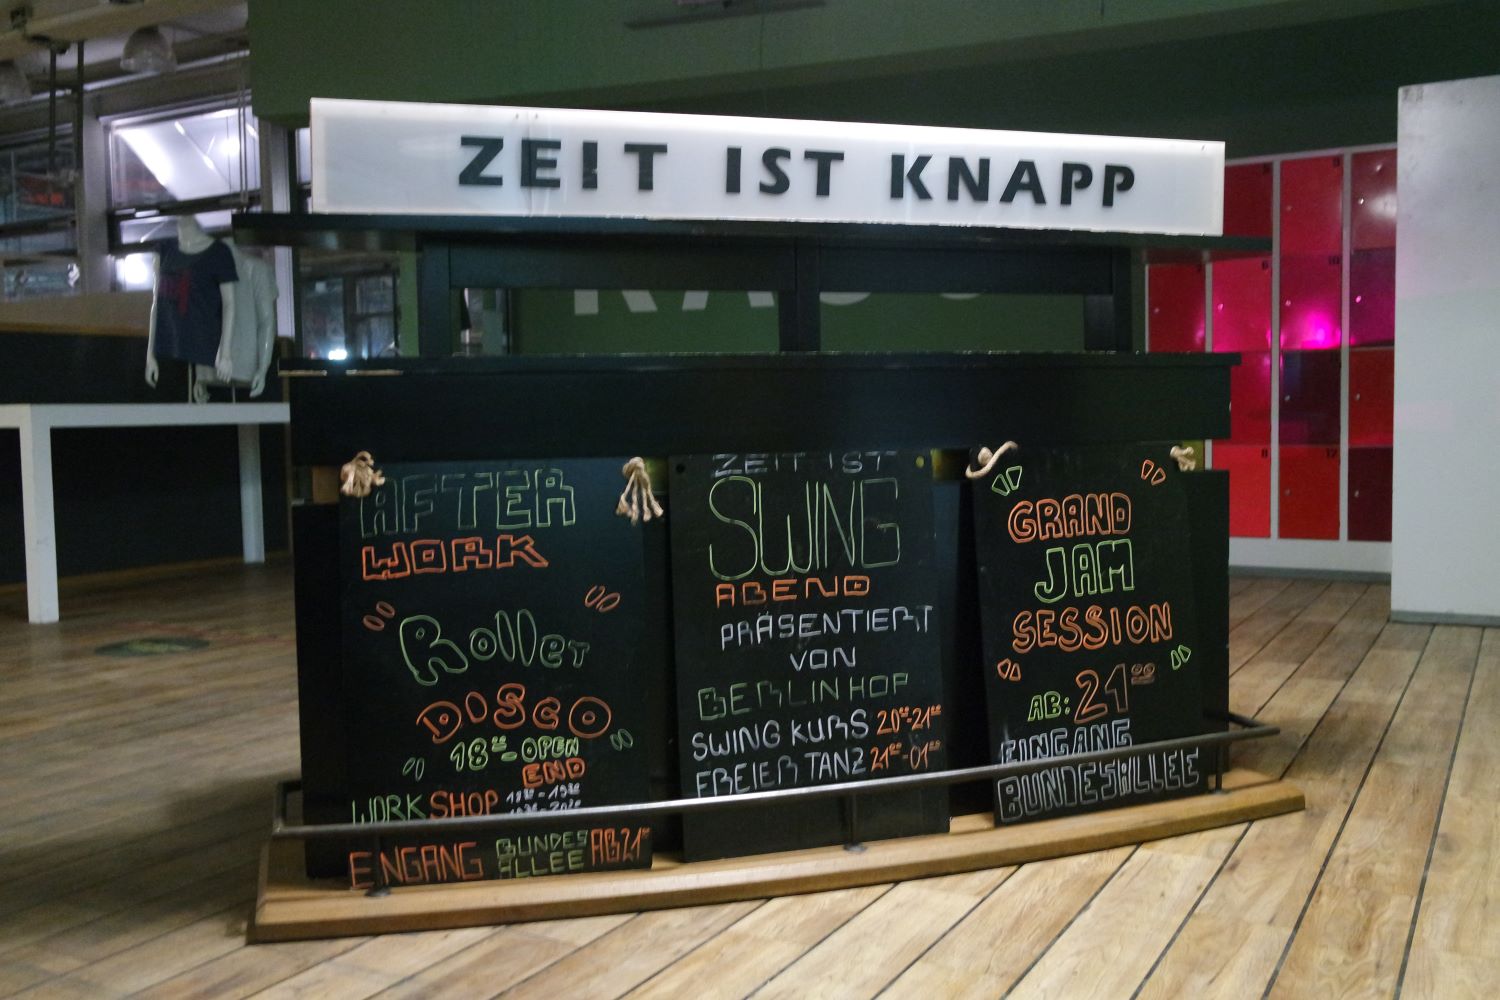 ZEIT IST KNAPP
AFTER
WORK
Roller
DISCO
18⁰⁰-OPEN
END
WORKSHOP
EINGANG BUNDES ALLEE AB 21⁰⁰
ZEIT IST
SWING
ABEND
PRÄSENTIERT
VON
BERLIN HOP
SWING KURS 20⁰⁰-21⁰⁰
FREIER TANZ 21⁰⁰-01⁰⁰
GRAND
JAM
SESSION
AB: 21⁰⁰
EINGANG
BUNDESALLEE